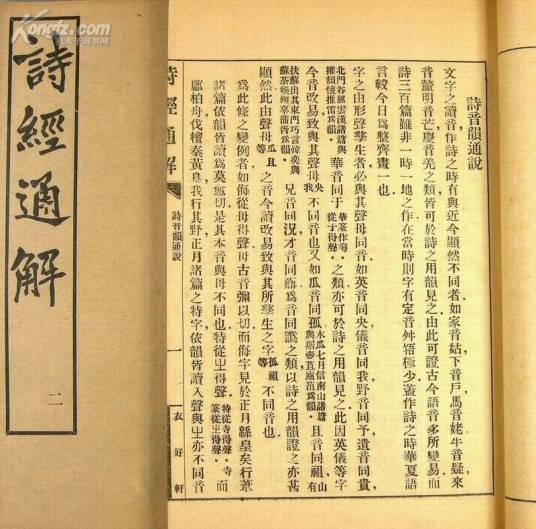 Kongfz.com
孔夫子旧书网
詩經通解
二
詩音韻通說
文字之讀音作詩之時有與近今顯然不同者如家音姑下音戶馬音姥牛音疑來
音釐明音芒慶音羌之類皆可於詩之用韻見之由此可證古今語音多所變易而
詩三百篇雖非一時一地之作在當時則字有定音舛牾極少蓋作詩之時華夏語
言較今日爲整齊畫一也
字之由形聲孳生者必與其聲母同音如英音同央儀音同我野音同予遺音同貴
北門谷風雲漢諸篇與
摧頹懷推雷爲韻
華音同于
華篆作𠌶
從于得聲
之類亦可於詩之用韻見之此因英儀等字
今音改易致與其聲母
央
我
不同音也又如瓜音同孤
木瓜七月信南山諸篇
與琚壺苴廬菹爲韻
且音同祖
有山
扶蘇出其東門巧言韓奕與
蘇荼娛幠辜蒲皆爲韻
兄音同況才音同爲音同譌之類以詩之用韻證之亦甚
顯然此由聲母
瓜且
等
之音今讀改易致與其所孳生之字
孤祖
等
不同音也
爲此條之變例者如侮從母得聲母古音彌以切而侮字見於正月緜皇矣行葦
諸篇依韻皆讀爲莫切是其本音與母不同也特從㞢得聲
特從寺得聲寺而
篆從㞢得聲
鄘柏舟伐檀黃鳥我行其野正月諸篇之特字依韻皆讀入聲與㞢亦不同音
詩經通解
詩音韻通說
一
衣好軒